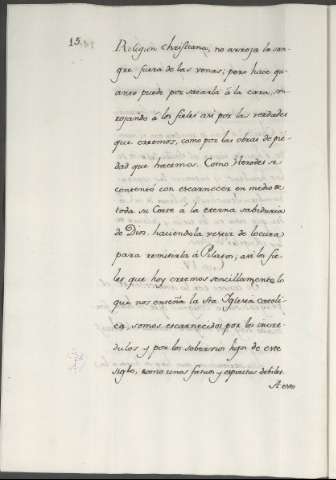 15.
Religion christiana, no arroja la san-
gre fuera de las venas; pero hace qu-
anto puede por sacarla á la cara, son-
rojando á los fieles asi por las verdades
que creemos, como por las obras de pie-
dad que hacemos. Como Herodes se
contentó con escarnecer en medio de
toda su Corte á la eterna sabiduria
de Dios, haciendola vestir de locura
para remitirla á Pilatos; asi los fie-
les que hoy creemos sencillamente lo
que nos enseña la Sta. Iglesia catoli-
ca, somos escarnecidos por los incre-
dulos y por los soberbios hijos de este
siglo, como unos fatuos y espiritus debiles.
A esto